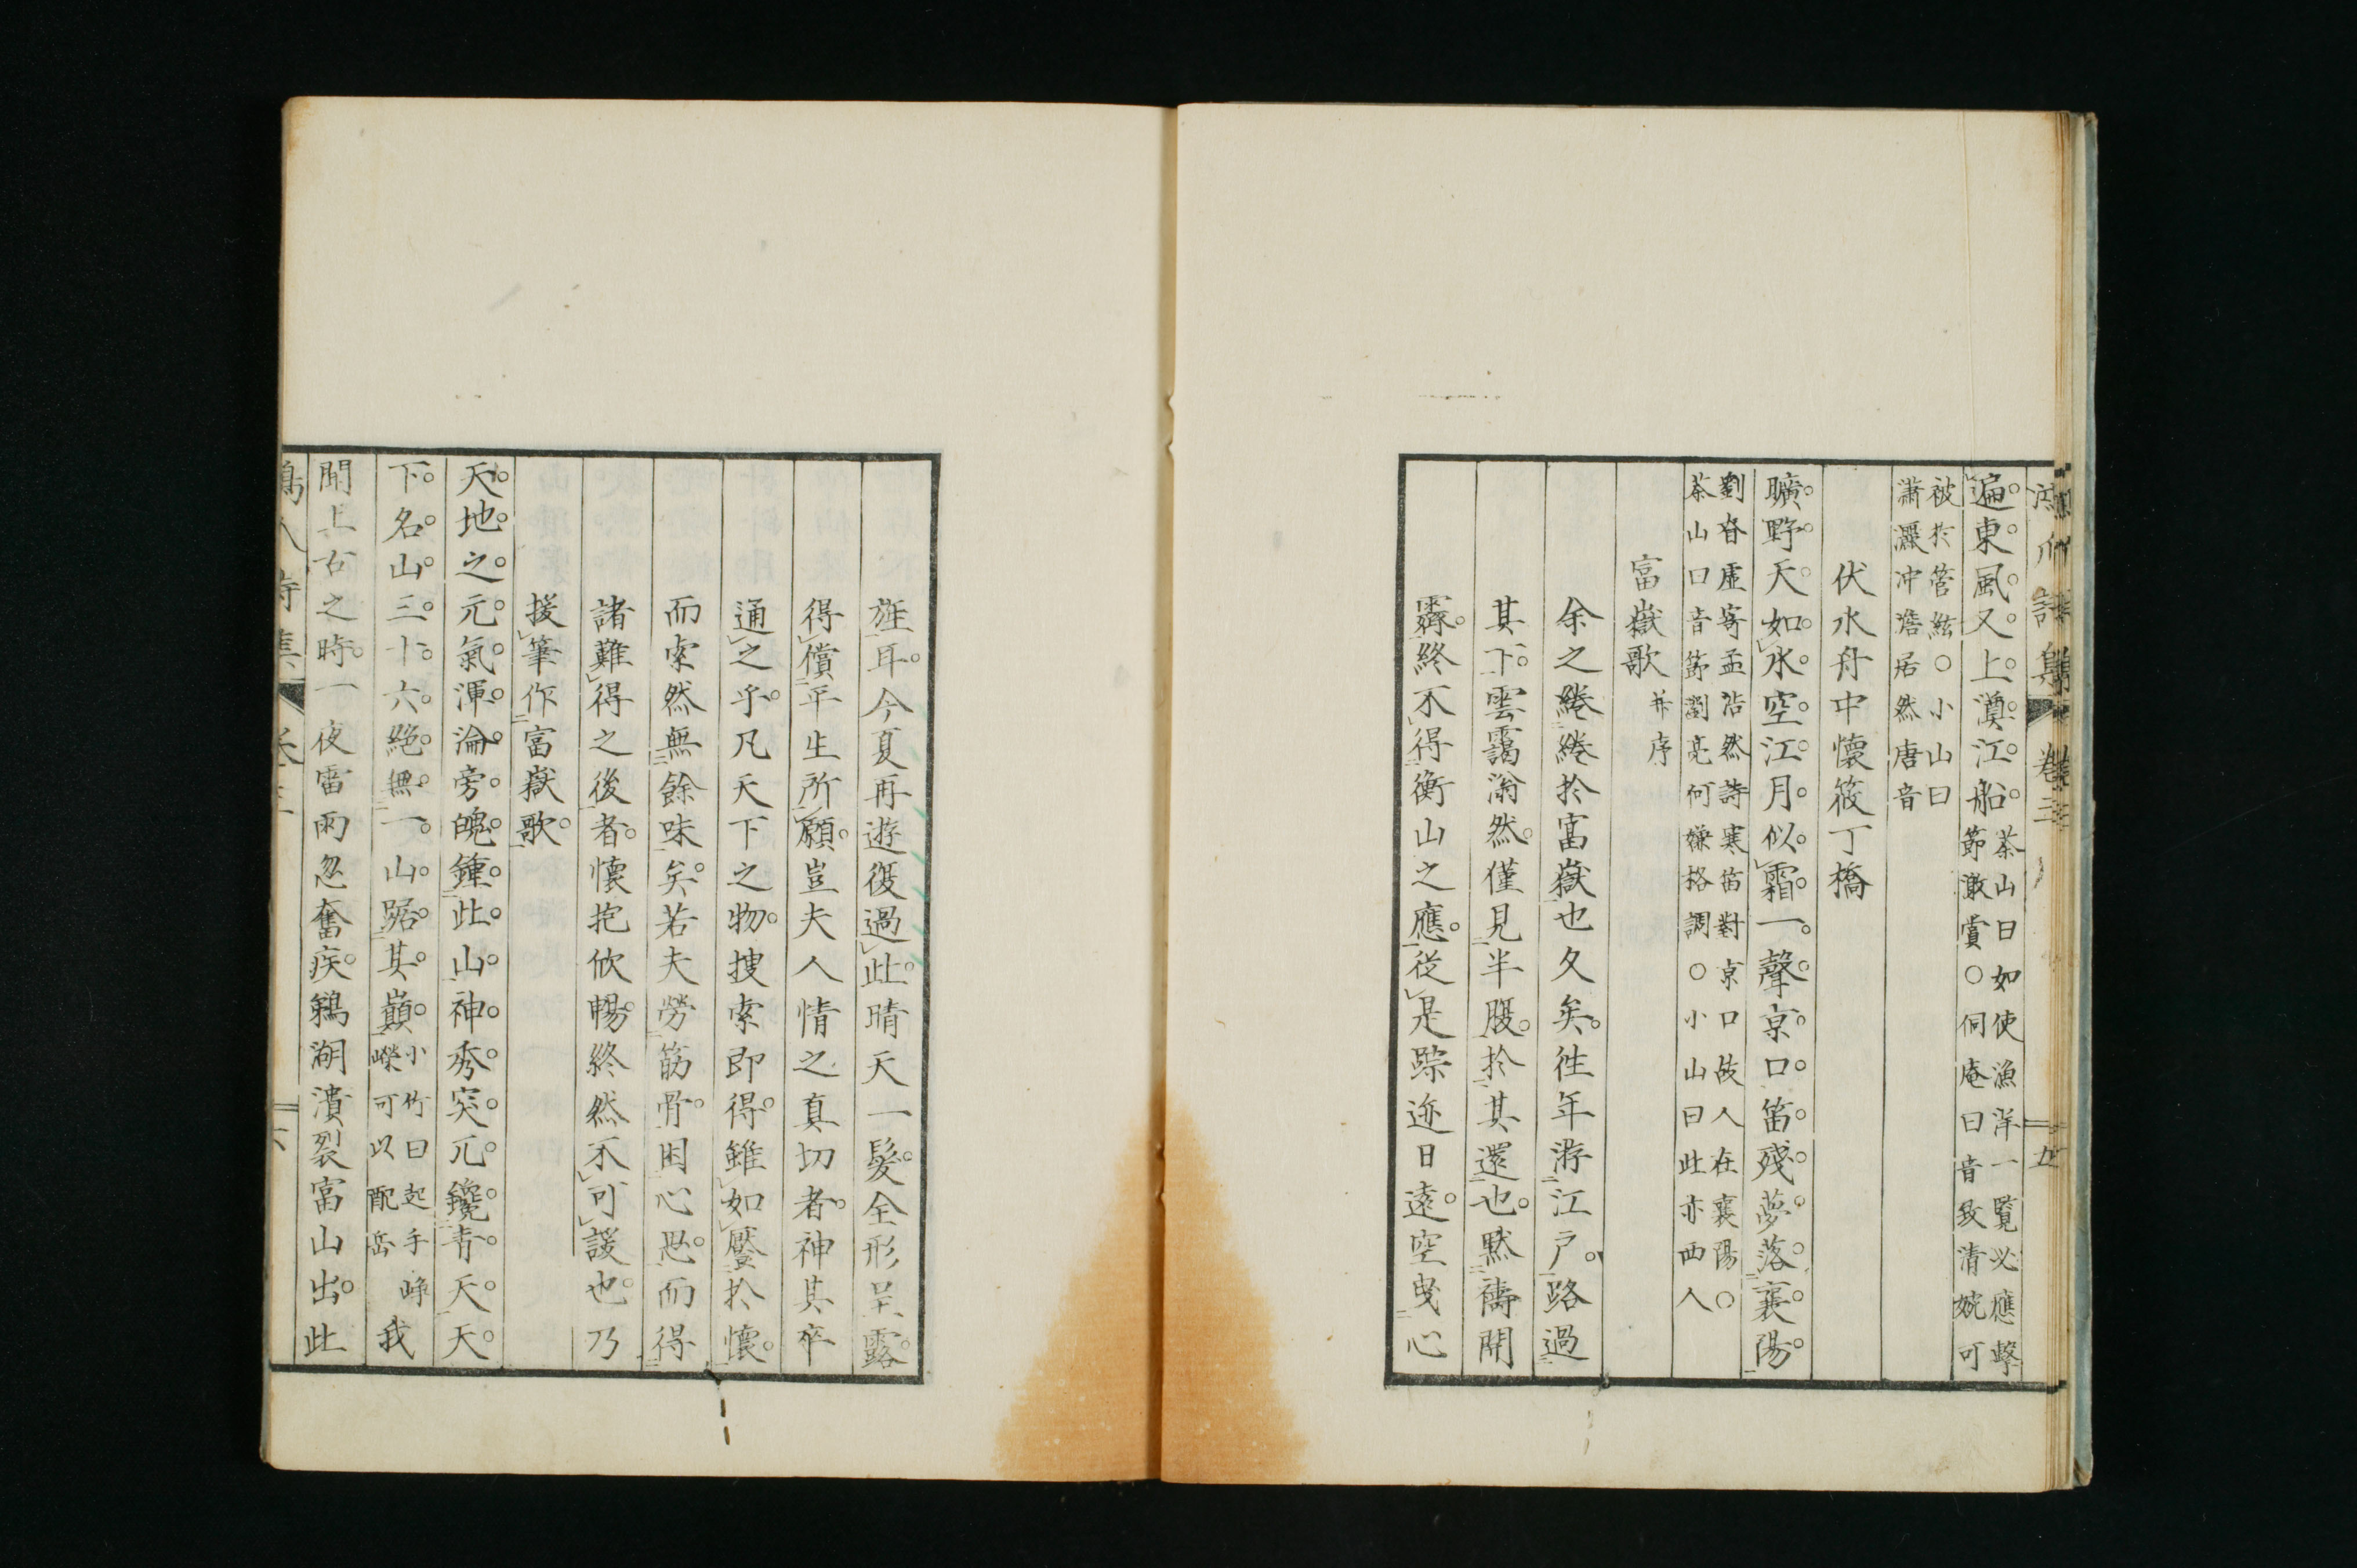 遍。東。風。又。上。漢。江。船。
茶山曰如使漁洋一覽必應擊
節激賞○侗庵曰音致清婉可
被於管絃○小山曰
瀟灑冲澹居然唐音
伏水舟中懷筱丁橋
曠。野。天。如。水。空。江。月。似。霜。一。聲。京。口。笛。殘。夢。落。襄。陽。
劉眘虛寄孟浩然詩寒笛對京口故人在襄陽○
茶山曰音節瀏亮何嫌格調○小山曰此亦西入
富嶽歌
并序
余之綣綣於富嶽也久矣。徃年游江戶。路過
其下。雲靄滃然。僅見半腹。於其還也。默禱開
霽。終不得衡山之應。從是踪迹日遠。空曳心
旌耳。今夏再遊復過此。晴天一髮。全形呈露。
得償平生所願。豈夫人情之真切者。神其卒
通之乎。凡天下之物。搜索即得。雖如饜於懷。
而索然無餘味矣。若夫勞筋骨。困心思。而得
諸難得之後者。懷抱欣暢。終然不可諼也。乃
援筆作富嶽歌。
天。地。之。元。氣。渾。淪。旁。魄。鍾。此。山。神。秀。突。兀。鑱。青。天。天。
下。名。山。三。十。六。絕。無。一。山。踞。其。巔。
小竹曰起手崢
嶸可以配岳
我
聞上古之時。一夜雷雨忽奮疾。鶴湖潰裂富山出。此